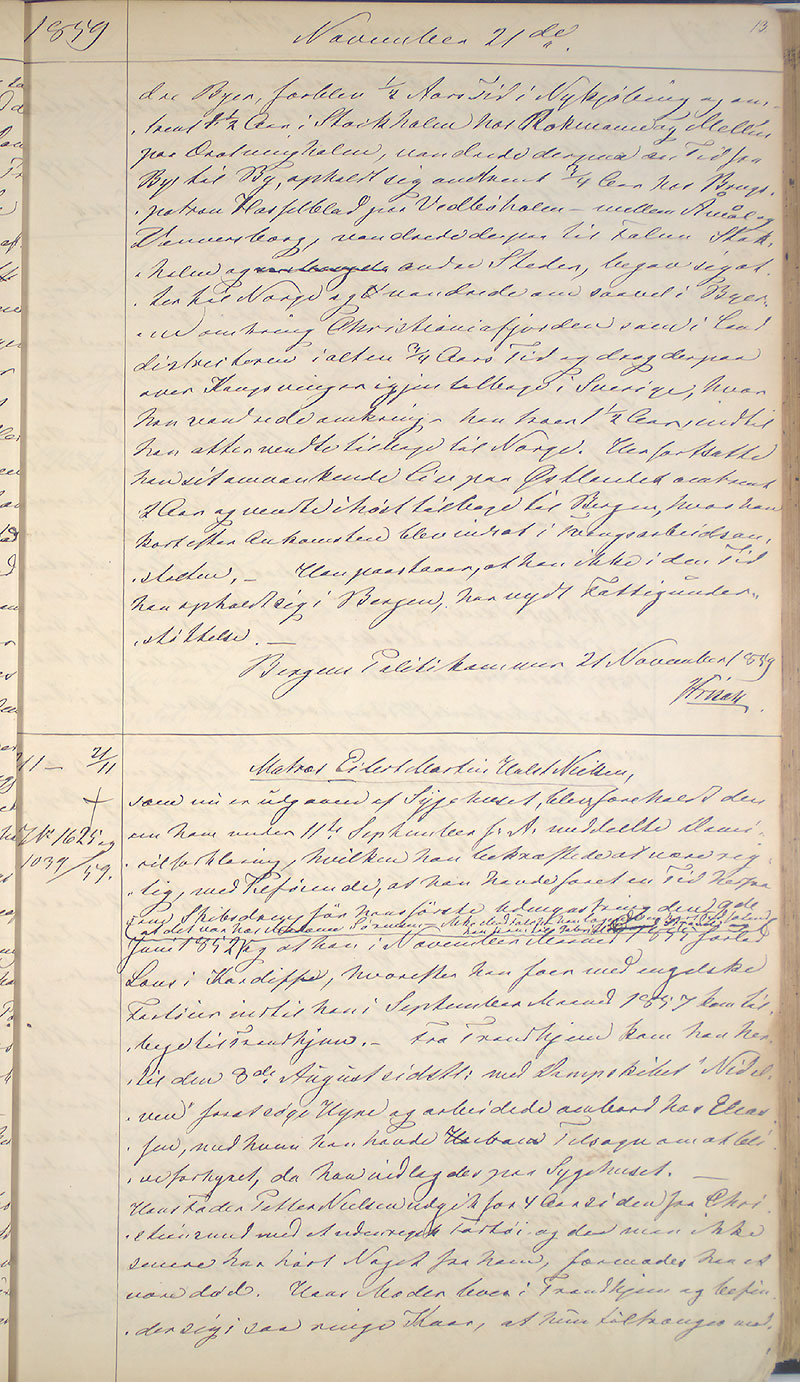 1859
November 21de.
13.
dre Byer, forblev 1/2 Aars Tid i Nykjøbing og om-
trent 1 1/2 Aar i Stockholm hos Rokmann og Mellin
paa Drotningholm, vandrede derpaa en Tid fra
By til By, opholdt sig omtrent 3/4 Aar hos Brugs-
patron Hasselblad paa Vedbøholm – mellem Åmål og
Vennersborg, vandrede derpaa til Falun Stok-
holm og andre Steder, begav sig at-
ter til Norge og vandrede om saavel i Byer-
ne omkring Christianiafjorden som i Land
districterne i alten 3/4 Aars Tid og drog derpaa
over Kongsvinger igjen tilbage i Sverige, hvor
han vandrede omkring omtrent 1 1/2 Aar, indtil
han atter vendte tilbage til Norge. Her fortsatte
han sit omvankende Liv paa Østlandet omtrent
2 Aar og vendte i høst tilbage til Bergen, hvor han
kort efter Ankomsten blev indsat i Tvangsarbeidsan-
stalten. – Han paastaaer, at han ikke i den Tid
han opholdt sig i Bergen, har nydt Fattigunder-
støttelse. –
Bergens Politikammer 21 November 1859
11 – 21/11
Matros Eilert Martin Holst Nielsen,
som nu er udgaaet af Sygehuset, blev foreholdt den
om ham under 11te September f. A. meddelte Domi-
1625 og
cilforklaring, hvilken han bekræftede at være rig-
1039/59.
tig, med Tilføiende, at han havde faret en Tid herfra
som Skibsdreng før hans første Udmønstring den 29de
Juni 1852 og at han i November Maaned 1855 forlod
Lous i Kardiffe, hvorefter han foer med engelske
Fartøier indtil han i September Maaned 1857 kom til-
bage til Trondhjem. – Fra Trondhjem kom han her-
til den 8de August sidstl: med Dampskibet "Nidel-
ven" for at søge Hyre og arbeidede ombord hos Elias-
sen, med hvem han havde Tilsagn om at bli-
ve forhyret, da han indlagdes paa Sygehuset. –
Hans Fader Petter Nielsen udgik for 4 Aar siden fra Chri-
stiansund med et udenrigsk Fartøi og da man ikke
senere har hørt Noget fra ham, formodes han at
være død. Hans Moder boer i Trondhjem og befin-
der sig i saa ringe Kaar, at hun tiltrænger med-